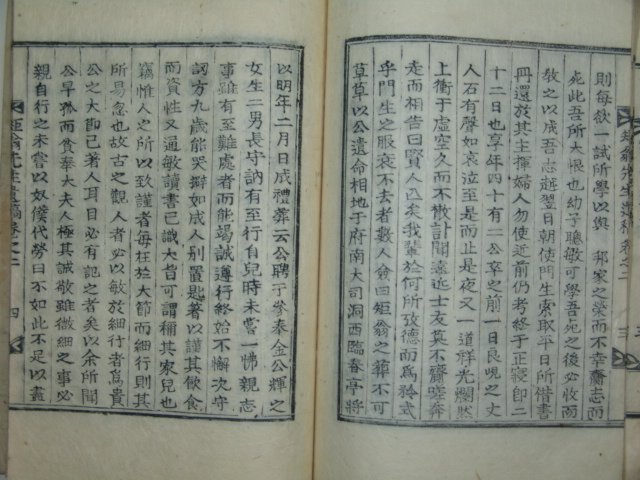 則每欲一試所學以與 邦家之榮而不幸齎志而
死此吾所大恨也幼子聰敏可學吾死之後必收而
敎之以成吾志越翌日朝使門生索取平日所借書
冊還於其主揮婦人勿使近前仍考終于正寢卽二
十二日也享年四十有二公卒之前一日良晛之丈
人石有聲如哀泣至是而止是夜又一道祥光爛然
上衝于虛空久而不散訃聞遠近士友莫不齎嗟奔
走而相告曰賢人已矣我輩於何所攷德而爲矜式
乎門生之服衰不去者數人僉曰短翁之葬不可
草草以公遺命相地于府南大司洞西臨春亭將
以明年二月日成禮葬云公聘于參奉金公輝之
女生二男長守訥有至行自兒時未嘗一怫親志
事雖有至難處者而能竭誠遵行終始不懈次守
訒方九歲能哭辭如成人別置匙著以謹其飮食
而資性又通敏讀書已識大旨可謂稱其家兒也
竊惟人之所以致謹者每在於大節而細行則其
所易忽也故古之觀人者必以敏於細行者爲貴
公之大節已著人耳目必有記之者矣以余所聞
公早孤而食奉大夫人極其誠敬雖微細之事必
親自行之未嘗以奴僕代勞曰不如此不足以盡
先生遺稿卷之二
三
四